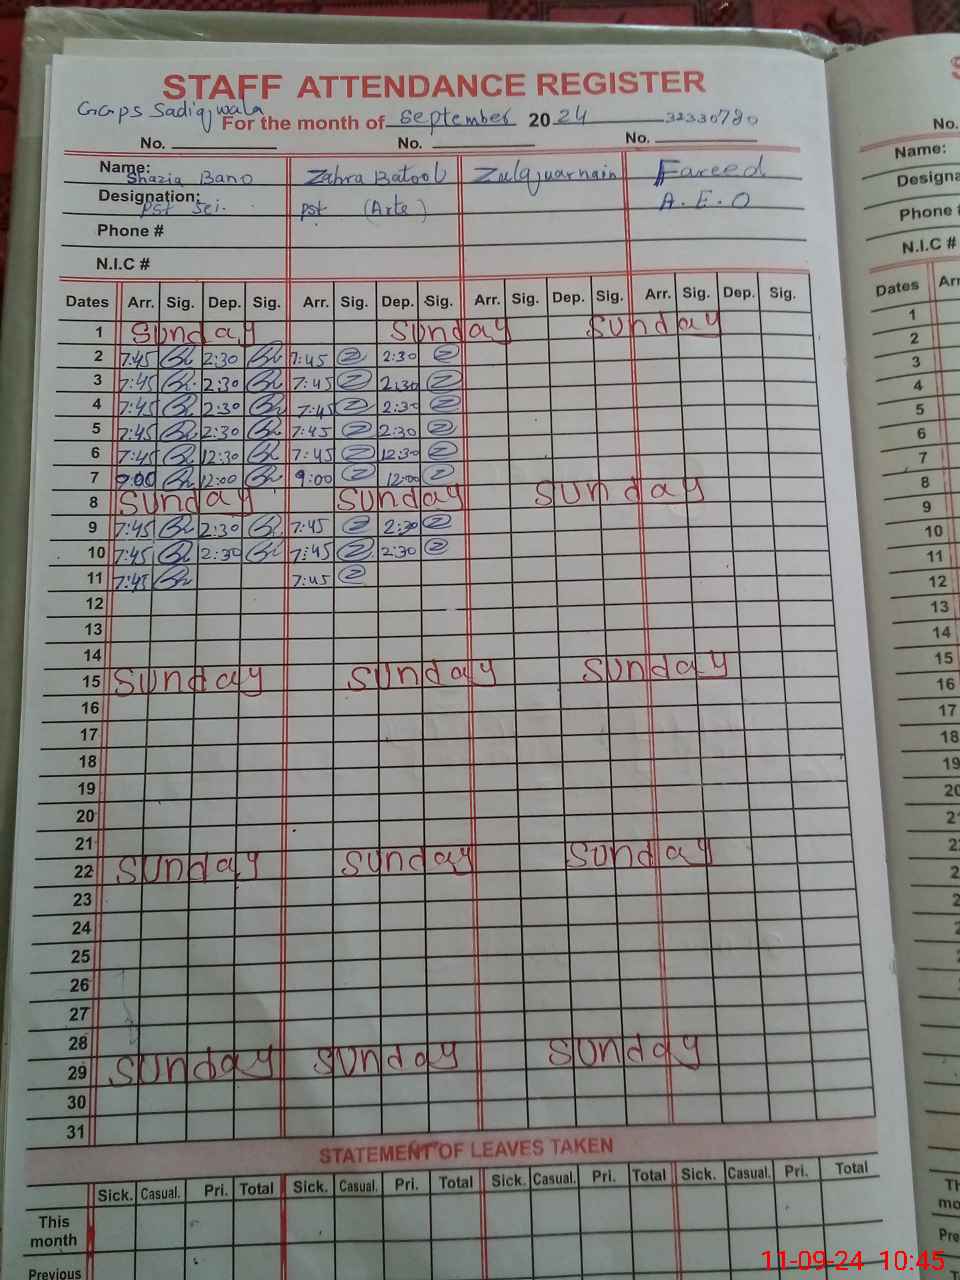 STAFF ATTENDANCE REGISTER
GGPS Sadiqwala
For the month of September 2024 32330780
No. No. No.
Name: Shazia Bano Zahra Batool Zulqarnain Fareed
Designation: PST Sci. PST (Arts) A.E.O
Phone #
N.I.C #
Dates Arr. Sig. Dep. Sig. Arr. Sig. Dep. Sig. Arr. Sig. Dep. Sig. Arr. Sig. Dep. Sig.
1 Sunday Sunday Sunday
2 7:45 2:30 7:45 2:30
3 7:45 2:30 7:45 2:30
4 7:45 2:30 7:45 2:30
5 7:45 2:30 7:45 2:30
6 7:45 12:30 7:45 12:30
7 9:00 12:00 9:00 12:00
8 Sunday Sunday Sunday
9 7:45 2:30 7:45 2:30
10 7:45 2:30 7:45 2:30
11 7:45 7:45
12
13
14
15 Sunday Sunday Sunday
16
17
18
19
20
21
22 Sunday Sunday Sunday
23
24
25
26
27
28
29 Sunday Sunday Sunday
30
31
STATEMENT OF LEAVES TAKEN
Sick. Casual. Pri. Total Sick. Casual. Pri. Total Sick. Casual. Pri. Total Sick. Casual. Pri. Total
This
month
Previous
No.
Name:
Phone #
N.I.C #
Dates
1
2
3
4
5
6
7
8
9
10
11
12
13
14
15
16
17
18
11-09-24 10:45